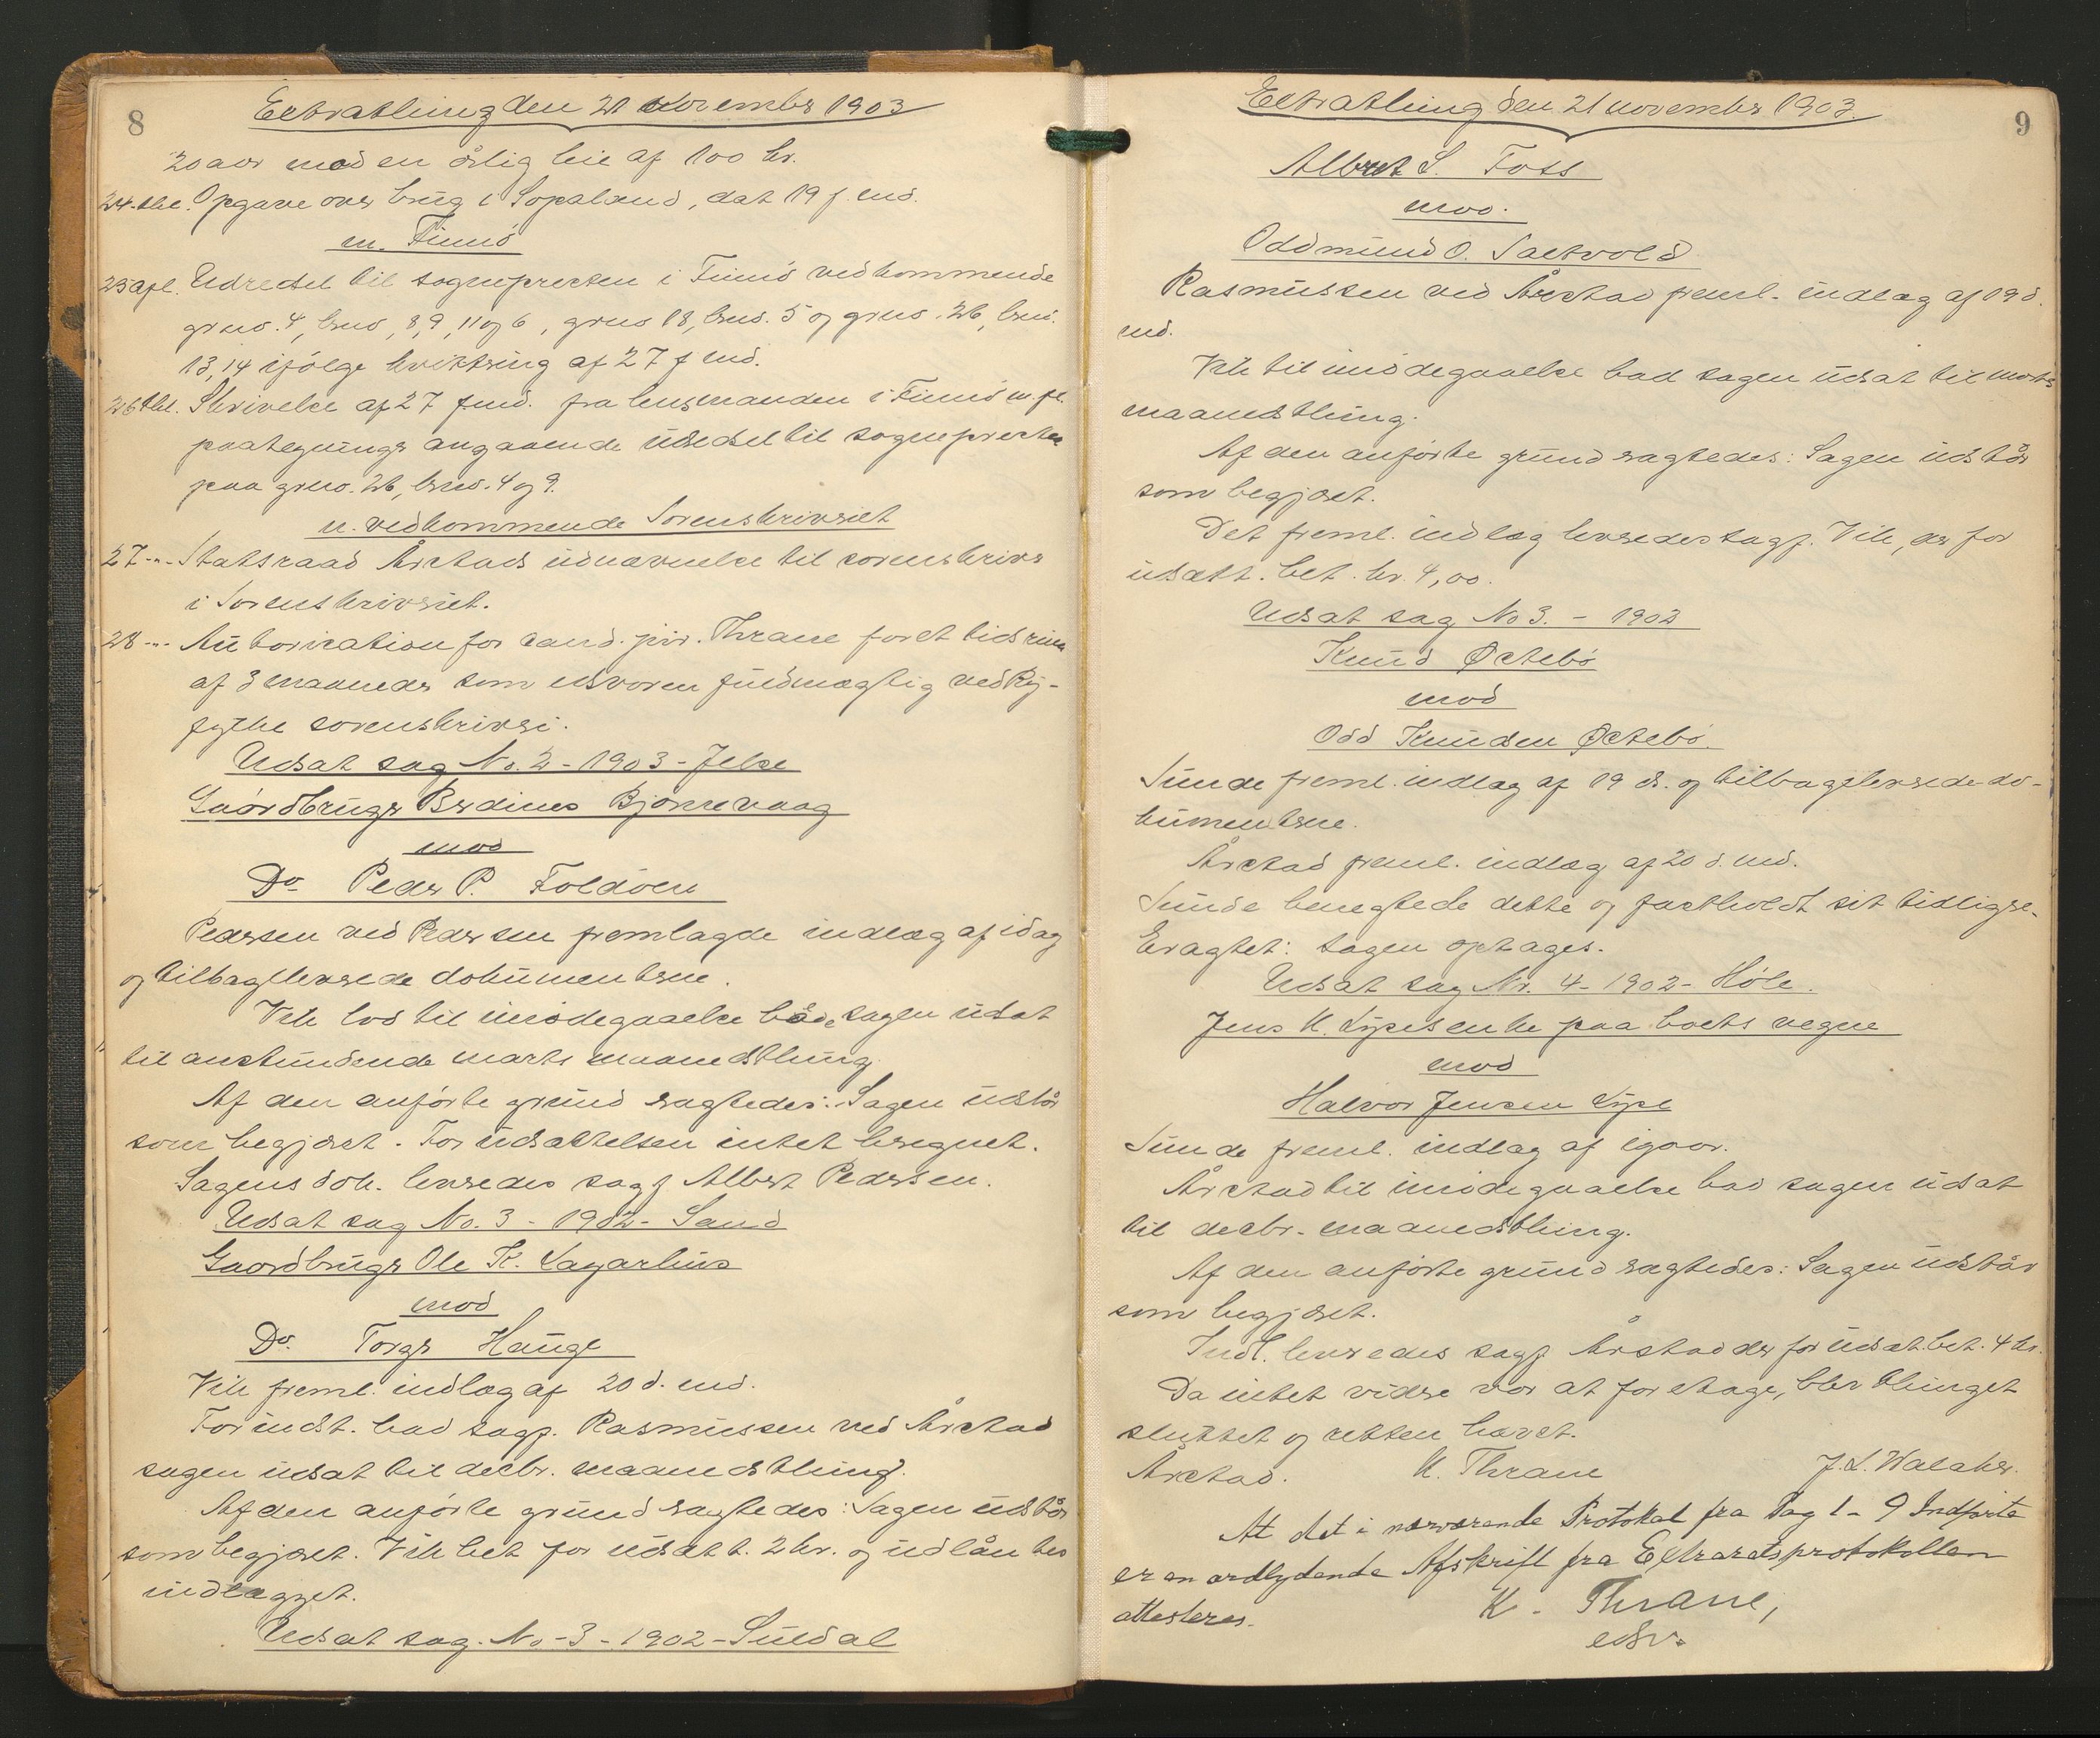 8
Extrathing den 21 November 1903
20 aar mod en årlig leie af 100 kr.
24. thl. Opgave over brug i Sopeland, dat 19 f. md.
m. Finnö
25 apl. Udredsel til sognepresten i Finnö vedkommende
grno. 4, brno, 8, 9, 11 og 6, grno 18, brno. 5 og grno. 26, brn.
13, 14 ifölge kvittering af 27 f md.
26 thl. Skrivelse af 27 fmd. fra lensmanden i Finnö m. fl.
paategninger angaaende udredsel til sognepresten
paa grno. 26, brno. 4 og 9.
n. vedkommende Sorenskriveriet
27 -"- Statsraad Årstads udnævnelse til sorenskriver
i Sorenskriveriet.
28 -"- Autorisation for cand. jur. Thrane for et tidsrum
af 3 maaneder som edsvoren fuldmægtig ved Ry-
fylke sorenskriveri.
Udsat sag No. 2 - 1903 - Jelse
Gaardbruger Berdines Bjornevaag
mod
Do Peder P. Foldöen
Pedersen ved Pedersen fremlagde indlæg af idag
og tilbageleverede dokumenterne.
Vik lod til imödegaaelse bade sagen udsat
til anstundende marts maanedsthing.
Af den anförte grund vagtedes: Sagen udstår
som begjæret. For udsættelsen intet beregnet.
Sagens dok. leveredes sagf Albert Pedersen.
Udsat sag No. 3 - 1902 - Sand
Gaardbruger Ole K. Lagarhus
mod
Do. Torger Hauge
Vik freml. indlæg af 20 d. md.
For indst. bad sagf. Rasmussen ved Årstad
sagen udsat til decbr. maanedsthing.
Af den anförte grund vagtedes: Sagen udstår
som begjæret. Vik bet for udsætt. 2 kr. og udlåntes
indlægget.
Udsat sag. No - 3 - 1902 - Suldal
9
Extrathing den 21 november 1903.
Albert S. Foss
mod.
Oddmund O. Saltvold
Rasmussen ved Årstad freml. indlæg af 19 d.
md.
Vik til imödegaaelse bad sagen udsat til marts
maanedsthing.
Af den anförte grund vagtedes: Sagen udstår
som begjæret.
Det freml. indlæg leveredes sagf. Vik, der for
udsætt. bet. kr. 4,00.
Udsat sag No 3. - 1902
Knud Østebö
mod
Odd Knudsen Østebö.
Sunde freml. indlæg af 19 ds. og tilbageleverede do-
kumenterne.
Årstad freml. indlæg af 20 d. md.
Sunde benegtede dette og fastholdt sit tidligere.
Eragtet: Sagen optages.
Udsat sag Nr. 4 - 1902 - Höle.
Jens H. Lyses enke paa boets vegne
mod
Halvor Jensen Lyse
Sunde freml. indlæg af igaar.
Årstad til imödegaaelse bad sagen udsat
til decbr. maanedsthing.
Af den anförte grund vagtedes: Sagen udstår
som begjæret.
Indl. leveredes sagf Årstad der for udsæt. bet. 4 kr.
Da intet videre var at foretage, blev thinget
sluttet og retten hævet.
Årstad. K. Thrane J. L. Walaker.
At det i nærværende Protokol fra Pag 1 - 9 Indförte
er en ordlydende Afskrift fra Extraretsprotokollen
attesteres. K. Thrane,
edsv.